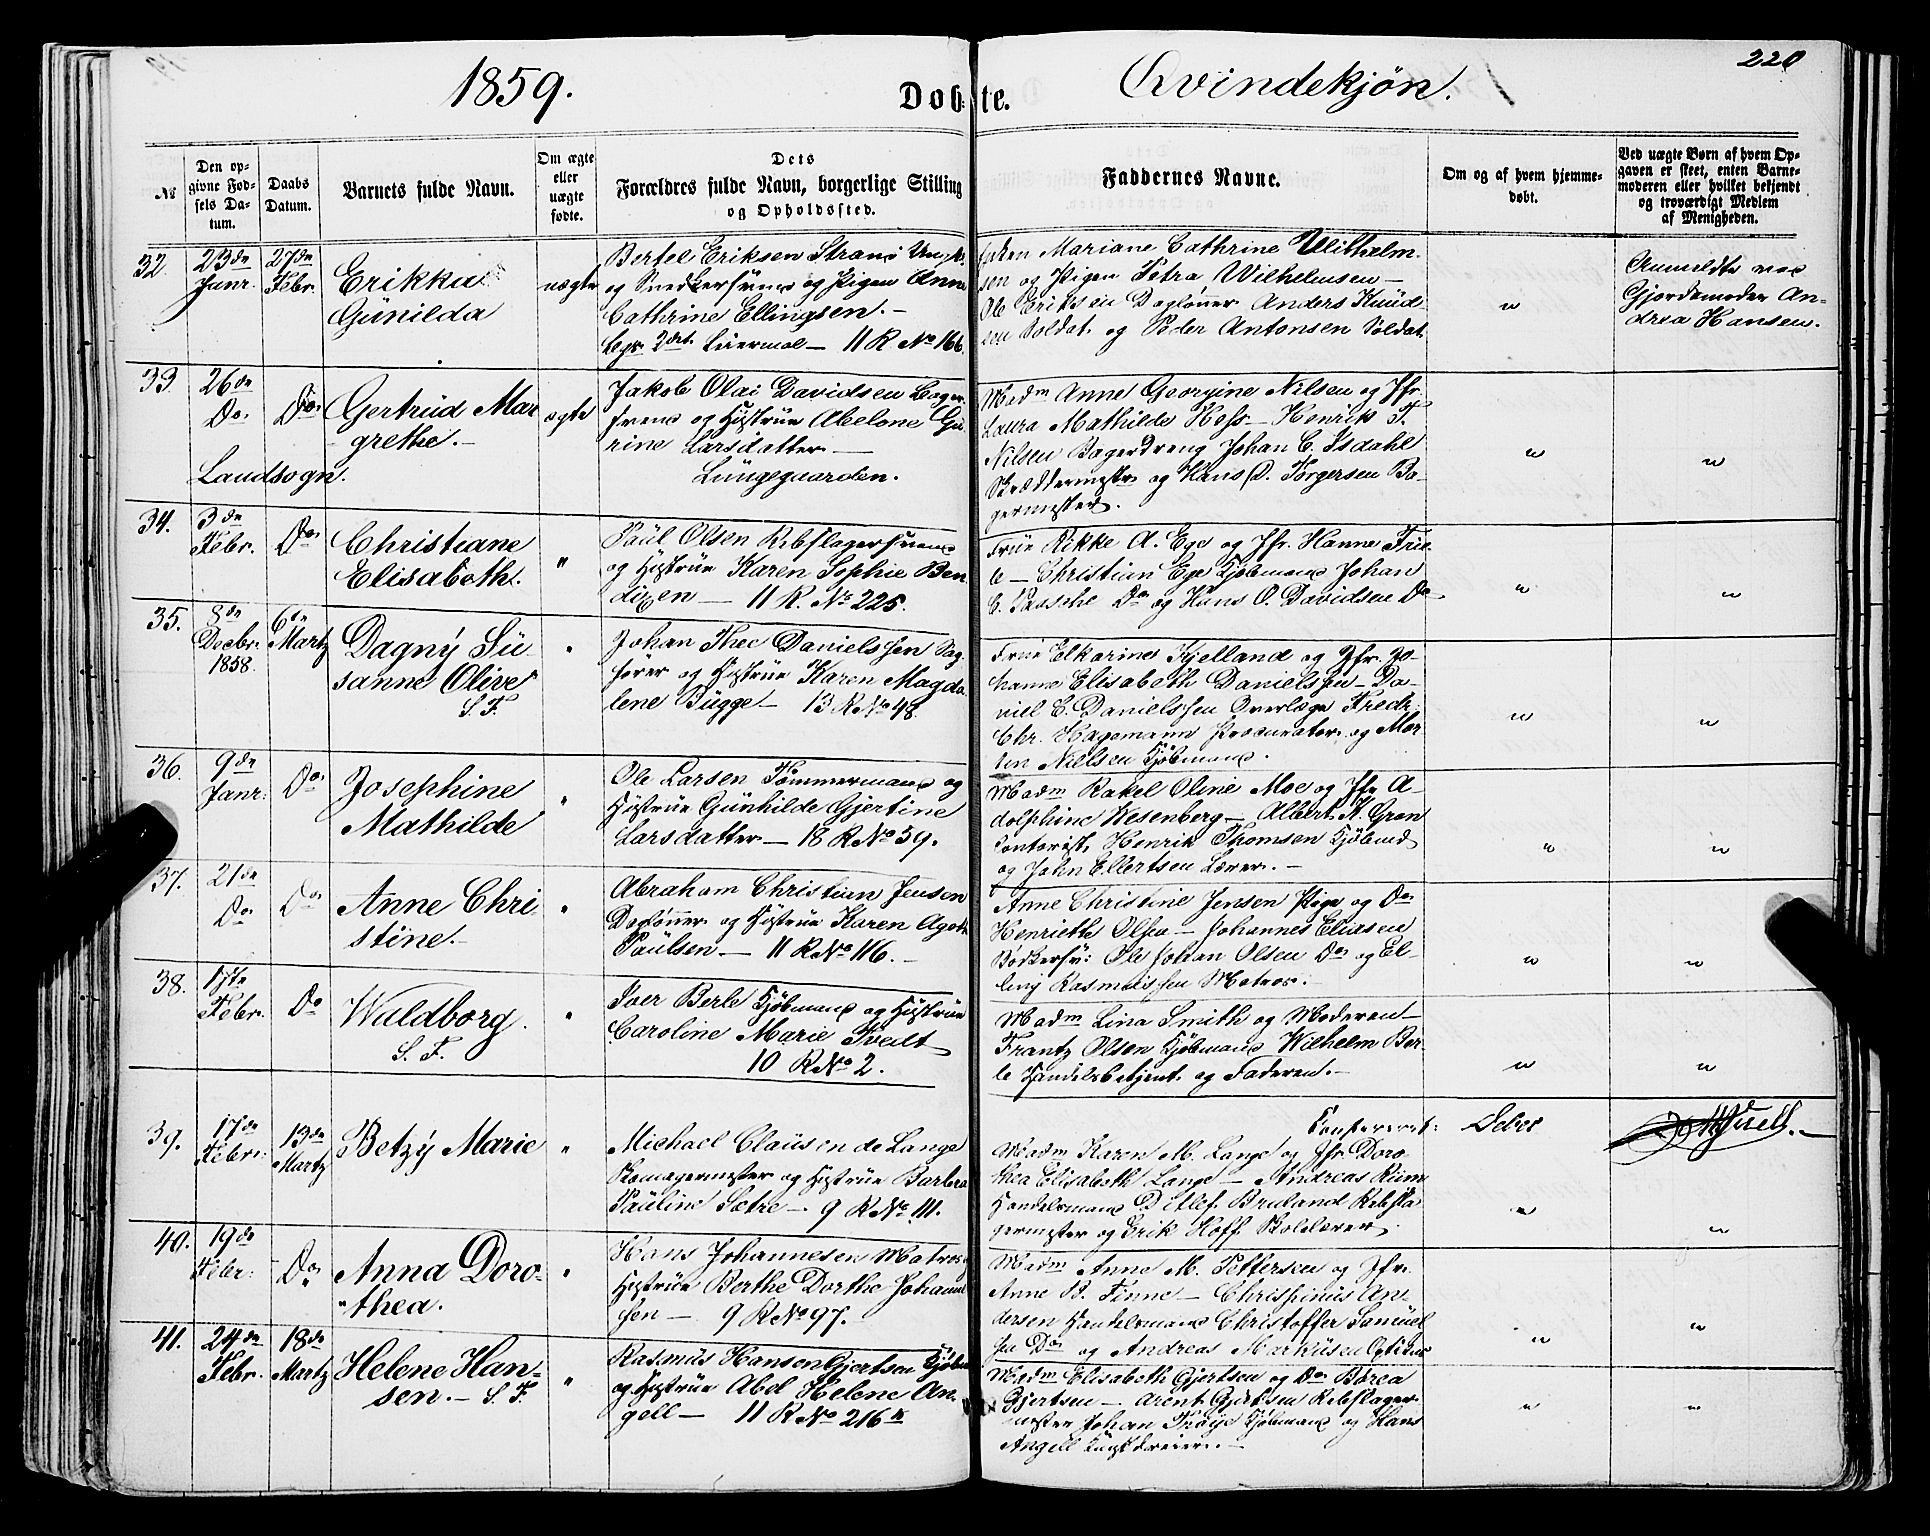 1859.
Döbte.
Qvindekjön.
220
№
Den opgivne Fødsels Datum.
Daabs Datum.
Barnets fulde Navn.
Om ægte eller uægte fødte.
Dets Forældres fulde Navn, borgerlige Stilling og Opholdssted.
Faddernes Navne.
Om og af hvem hjemmedøbt.
Ved uægte Børn af hvem Opgaven er skeet, enten Barnemoderen eller hvilket bekjendt og troværdigt Medlem af Menigheden.
32. 23de Janr. 27de Febr. Erikka Günilda uægte
Bertel Eriksen Strand
og Snedkersvend og Pigen Anne
Cathrine Ellingsen.
2det 11 R No 166.
Mariane Cathrine Wilhelm-
sen og Pigen Petra Wilhelmsen –
Ole Eriksen Dagløner Anders Knüd-
sen Soldat. og Peder Antonsen Soldat
"
Anmeldte ved
Gjordemoder An-
drea Hansen.
33 26de Do Do Gertrüd Mar-
grethe. – ægte
Landsogn.
Jakob Olai Davidsen Bager-
svend og Hüstrüe Abelone Gü-
rine Larsdatter –
Lüngegaarden.
Madm Anne Georgine Nilsen og Jfr.
Laura Mathilde Hess – Henrik F.
Nilsen Bagerdreng Johan C. Isdahl
Skræddermester og Hans D. Torgersen Ba-
germester.
" "
34. 3de Febr. Do Christiane
Elisabeth. "
Paül Olsen Rebslagersvend
og Hüstrüe Karen Sophie Ben-
dixen – 11 R. No 225.
Früe Rikke A. Ege og Jfr. Hanne Frie-
le – Christian Ege Kjöbmand Johan
C. Pasche Do og Hans O. Davidsen Do
" "
35. 8de Decbr. 1858. 6te Martz Dagny Sü-
sanne Olive
S. F. "
Johan Thee Danielssen Sag-
fører og Hüstrüe Karen Magda-
lene Bügge – 13 R No 48.
Früe Elkarine Kjelland og Jfr. Jo-
hanne Elisabeth Danielssen – Da-
niel C. Danielssen Overlæge Fredr.
Chr. Hagemann Procurator og Mor-
ten Nielsen Kjöbmand.
" "
36. 9de Janr: Do Josephine
Mathilde "
Ole Larsen Tømmermand og
Hüstrüe Günhilde Gjertine
Larsdatter – 18 R No 39.
Madm Rakel Oline Moe og Jfr A-
dolphine Wesenberg – Albert K. Gran
Contorist, Henrik Thomsen Kjöbmd
og John Ellertsen Lærer. –
" "
37. 21de Do Do Anne Chri-
stine. – "
Abraham Christian Jensen
Dagløner og Hüstrüe Karen Agethe
Paülsen – 11 R No 116. –
Anne Christine Jensen Pige og Do
Henriette Olsen – Johannes Eliasen
Bødkersv: Ole Johan Olsen Do og El-
ling Rasmüssen Matros.
" "
38. 17de Febr. Do Waldborg.
S. F. "
Iver Berle Kjöbmand og Hüstrüe
Caroline Marie Tvedt
10 R No 2.
Madm Lina Smith og Moderen –
Frantz Olsen Kjöbmand Wilhelm Ber-
le Handelsbetjent. og Faderen. –
" "
39. 17de Febr: 13de Martz Betzy Marie "
Michael Claüsen de Lange
Skomagermester og Hüstrüe Barbra
Paüline Sætre – 9 R No 111.
Madm Karen M. Lange og Jfr. Doro-
thea Elisabeth Lange – Andreas Riim
Handelsmand Detlef Brüland Rebsla-
germester og Erik Hoff Skolelærer.
" "
40. 19de Febr: Do Anna Doro-
thea. "
Hans Johannesen Matros og
Hüstrüe Berthe Dorthe Johanne-
sen – 9 R No 97.
Madm Anne M. Pettersen og Jfr.
Anne B. Finne – Chrispinüs An-
dersen Handelsmand Christoffer Samüel-
sen Do og Andreas Marküsen
" "
41. 24de Febr. 18de Martz Helene Han-
sen. – S. F. "
Rasmüs Hansen Gjertsen Kjöbmd
og Hüstrüe Abel Helene An-
gell – 11 R No 216 k
Madm Elisabeth Gjertsen og Do Borea
Gjertsen – Arent Gjertsen Rebslager-
mester Johan Frøije Kjöbmand og Hans
Angell Kunstdreier. –
" "